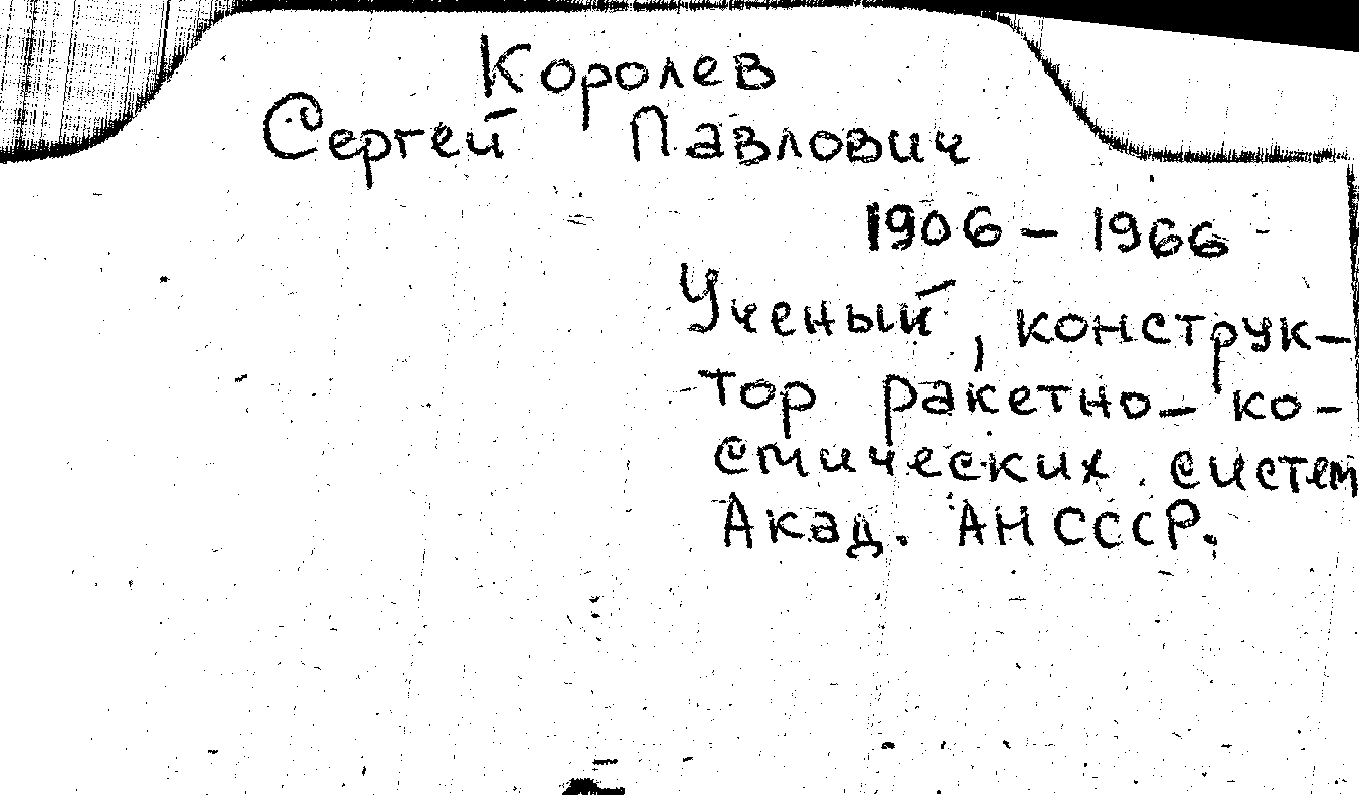 Королев
Сергей Павлович
1906 – 1966
Ученый, конструк-
тор ракетно-ко-
смических систем
Акад. АН СССР.